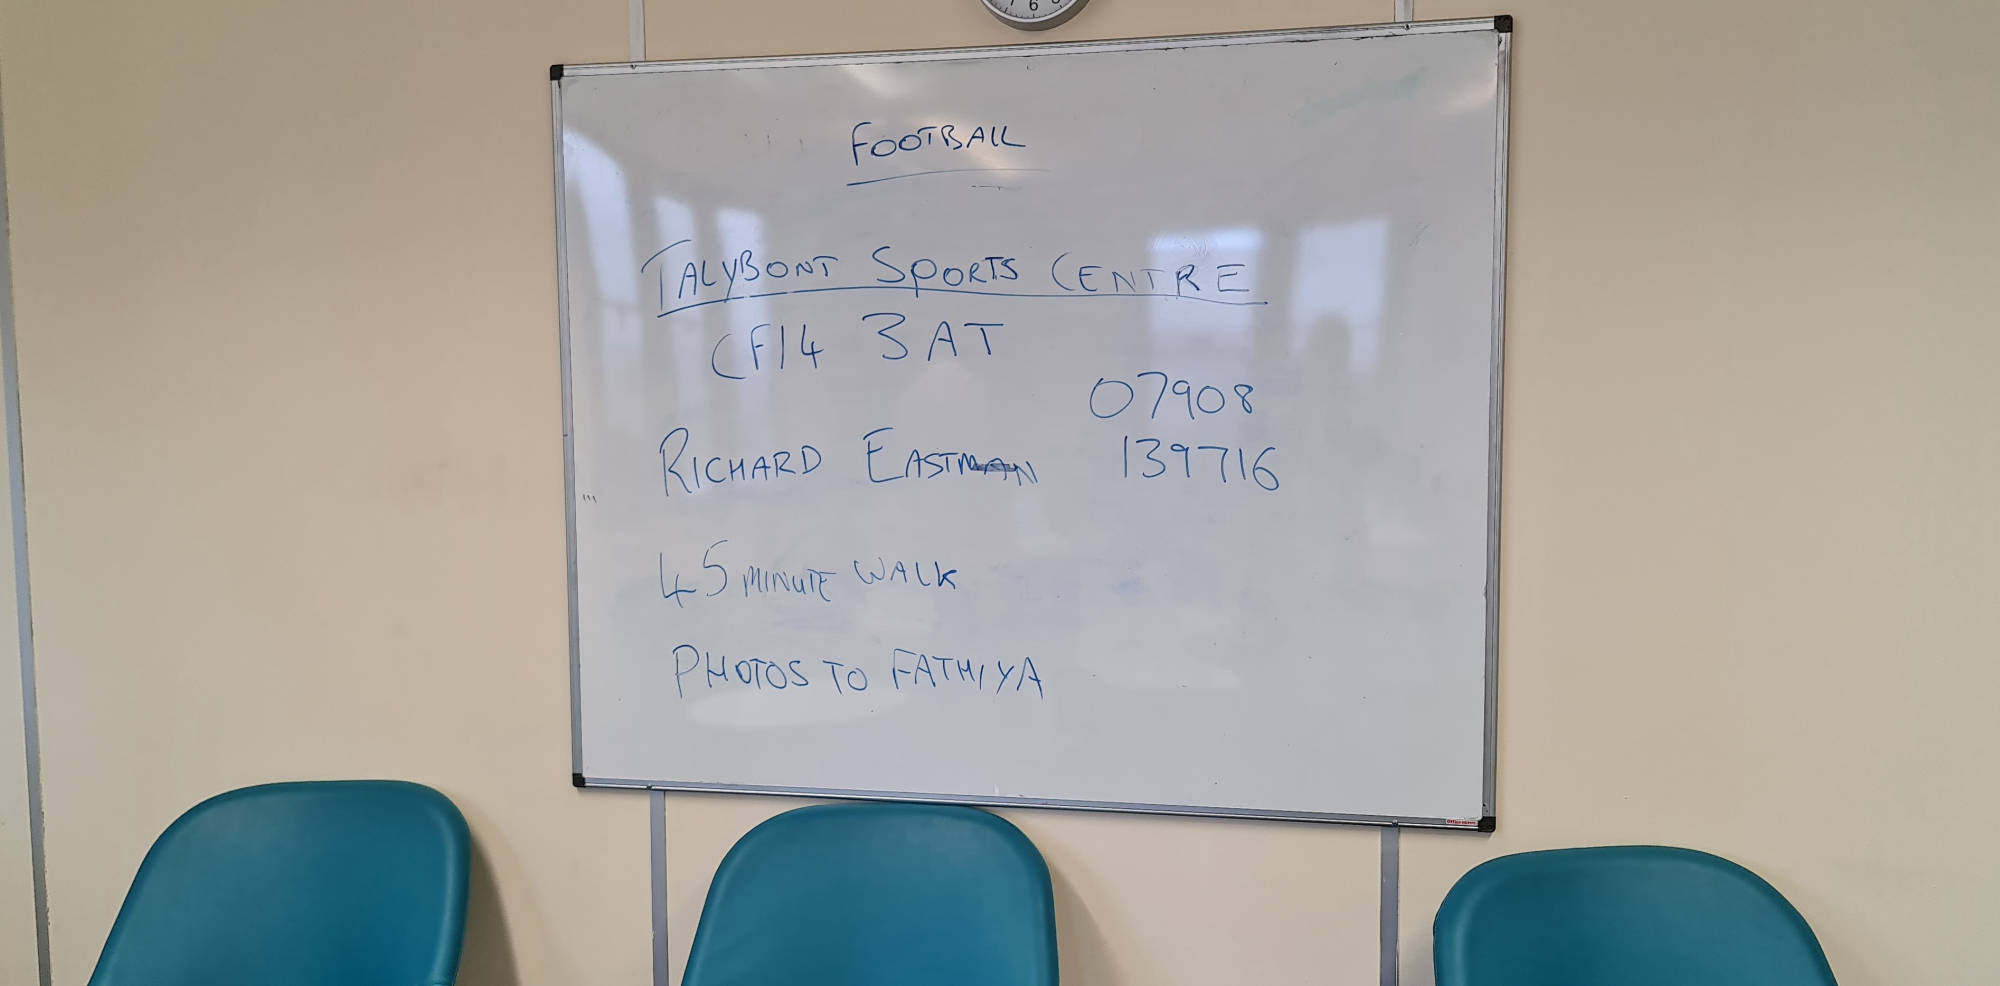 6
FOOTBALL
TALYBONT SPORTS CENTRE
CF14 3AT
07908
RICHARD EASTMAN 139716
45 MINUTE WALK
PHOTOS TO FATHIYA